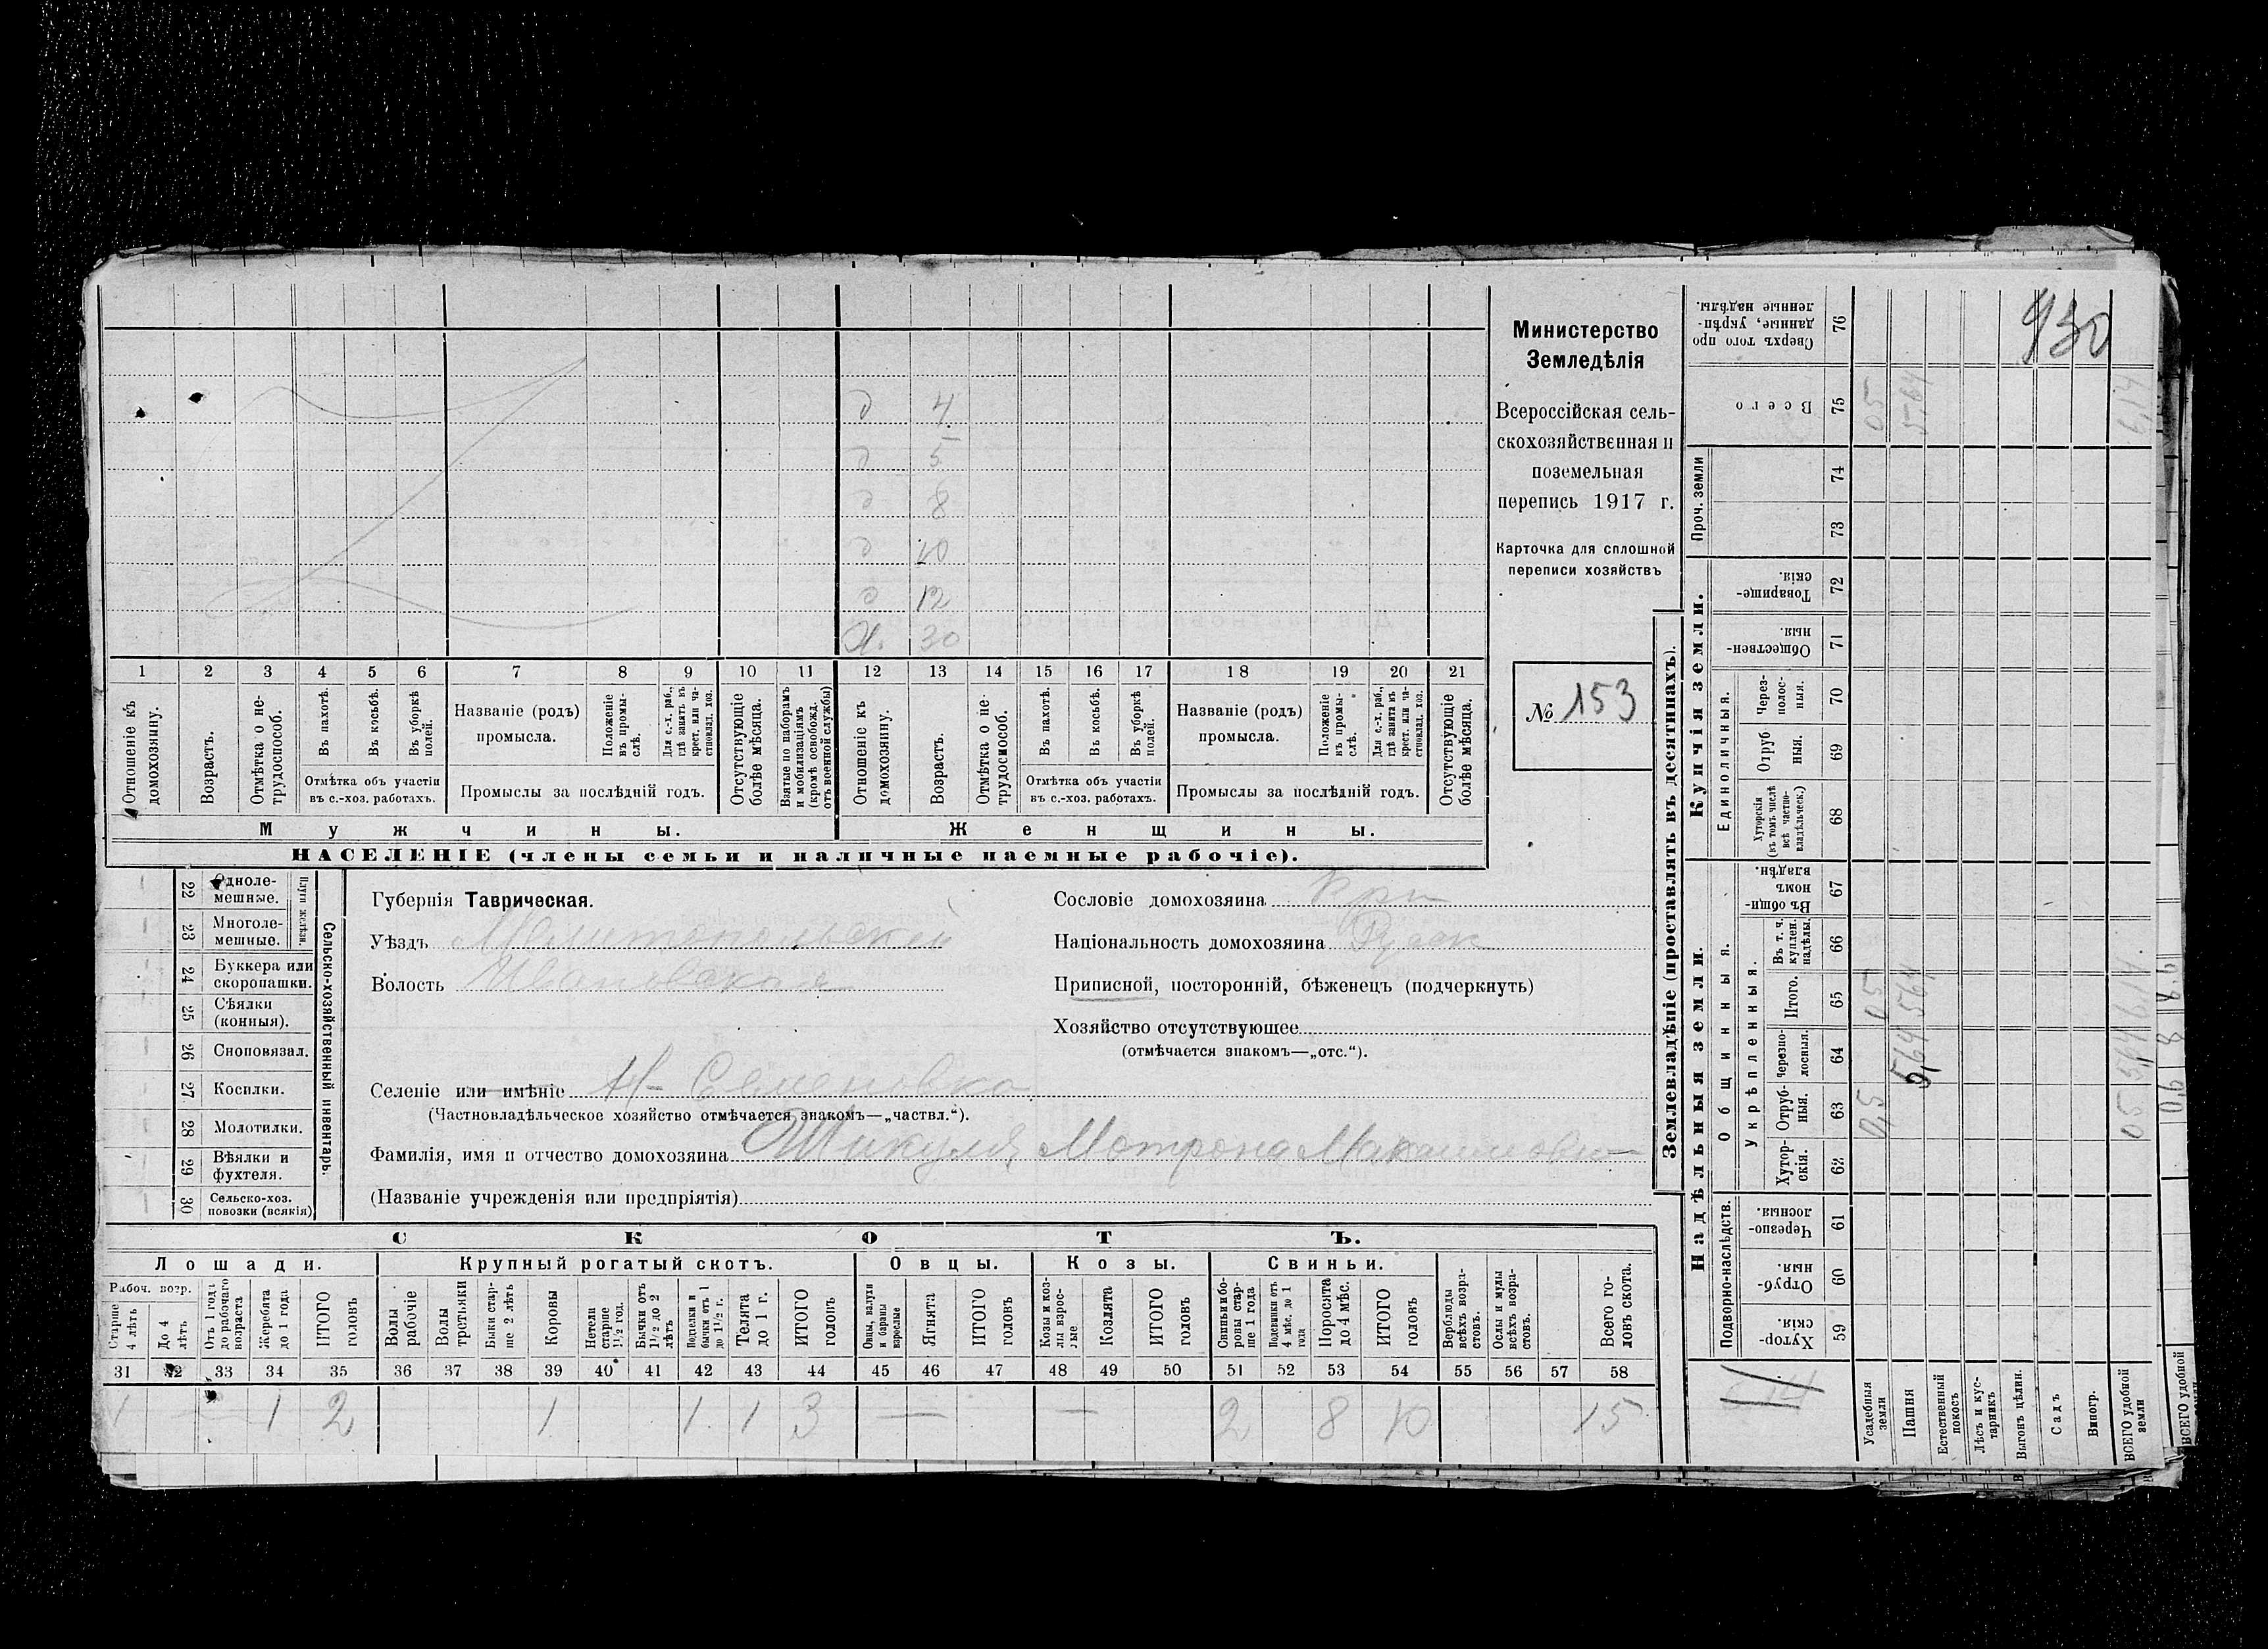 Министерство
Земледѣлія
Всероссійская сель-
скохозяйственная и
поземельная
перепись 1917 г.
Карточка для сплошной
переписи хозяйствъ
№ 153
д 4
д 5
д 8
д 10
д 12
Х. 30
1 2 3 4 5 6 7 8 9 10 11 12 13 14 15 16 17 18 19 20 21
Отношеніе къ домохозяину.
Возрастъ.
Отмѣтка о не-трудоспособ.
Въ пахотѣ.
Въ косьбѣ.
Въ уборкѣ полей.
Отмѣтка объ участіи
въ с.-хоз. работахъ.
Названіе (родъ)
промысла.
Положеніе въ промы-слѣ.
Для с.-х. раб., гдѣ занятъ въ крест. или ча-стновлад. хоз.
Промыслы за послѣдній годъ.
Отсутствующіе болѣе мѣсяца.
Взятые по наборамъ и мобилизаціямъ (кромѣ освобожд. отъ военной службы)
Отношеніе къ домохозяину.
Возрастъ.
Отмѣтка о не-трудоспособ.
Въ пахотѣ.
Въ косьбѣ.
Въ уборкѣ полей.
Отмѣтка объ участіи
въ с.-хоз. работахъ.
Названіе (родъ)
промысла.
Положеніе въ промы-слѣ.
Для с.-х. раб., гдѣ занята въ крест. или ча-стновлад. хоз.
Промыслы за послѣдній годъ.
Отсутствующіе болѣе мѣсяца.
Мужчины.
Женщины.
НАСЕЛЕНІЕ (члены семьи и наличные наемные рабочіе).
Сельско-хозяйственный инвентарь.
Плуги желѣзн.
22 Одноле-мешные.
23 Многоле-мешные.
24 Буккера или скоропашки.
25 Сѣялки (конныя).
26 Сноповязал.
27 Косилки.
28 Молотилки.
29 Вѣялки и фухтеля.
30 Сельско-хоз. повозки (всякія)
Губернія Таврическая.
Уѣздъ Мелитопольскій
Волость Ивановская
Селеніе или имѣніе Н-Семеновка
(Частновладѣльческое хозяйство отмѣчается знакомъ—„частвл.“).
Фамилія, имя и отчество домохозяина Шикуля Мотрона Максимовн
(Названіе учрежденія или предпріятія)
Сословіе домохозяина Кре
Національность домохозяина Русск
Приписной, посторонній, бѣженецъ (подчеркнуть)
Хозяйство отсутствующее
(отмѣчается знакомъ—„отс.“).
СКОТЪ.
Лошади.
Крупный рогатый скотъ.
Овцы.
Козы.
Свиньи.
Рабоч. возр.
Старше 4 лѣтъ
До 4 лѣтъ
Отъ 1 года до рабочаго возраста
Жеребята до 1 года
ИТОГО головъ
Волы рабочіе
Волы третьяки
Быки стар-ше 2 лѣтъ
Коровы
Нетели старше 1½ год.
Бычки отъ 1½ до 2 лѣтъ
Подтелки и бычки отъ 1 до 1½ г.
Телята до 1 г.
ИТОГО головъ
Овцы, валухи и бараны взрослые
Ягнята
ИТОГО головъ
Козы и коз-лы взрос-лые
Козлята
ИТОГО головъ
Свиньи и бо-ровы стар-ше 1 года
Подсвинки отъ 4 мѣс. до 1 года
Поросята до 4 мѣс.
ИТОГО головъ
Верблюды всѣхъ возра-стовъ.
Ослы и мулы всѣхъ возра-стовъ.
Всего го-ловъ скота.
31 32 33 34 35 36 37 38 39 40 41 42 43 44 45 46 47 48 49 50 51 52 53 54 55 56 57 58
1 — — 1 2 1 1 1 3 — — 2 8 10 15
Землевладѣніе (проставлять въ десятинахъ).
Надѣльныя земли.
Купчія земли.
Проч. земли
Подворно-наслѣдств.
Общинныя.
Укрѣпленныя.
Единоличныя.
Хутор-скія. 59
Отруб-ныя. 60
Черезпо-лосныя. 61
Хутор-скія. 62
Отруб-ныя. 63
Черезпо-лосныя. 64
Итого. 65
Въ т. ч. куплен. надѣлы. 66
Въ общи-номъ владѣн. 67
Хуторскія (въ томъ числѣ всѣ частно-владѣльческ.) 68
Отруб ныя. 69
Через-полос-ныя. 70
Обществен-ныя. 71
Товарище-скія. 72
73
74
Всего 75
Сверхъ того про данные, укрѣп-ленные надѣлы. 76
Усадебныя земли 0,5 05 05
Пашня 5,64 564 5,64
Естественный покосъ
Лѣсъ и кус-тарникъ
Выгонъ цѣлин.
Садъ
Виногр.
ВСЕГО удобной земли 05 5,64 6,14 6,14
ВСЕГО удобной
930